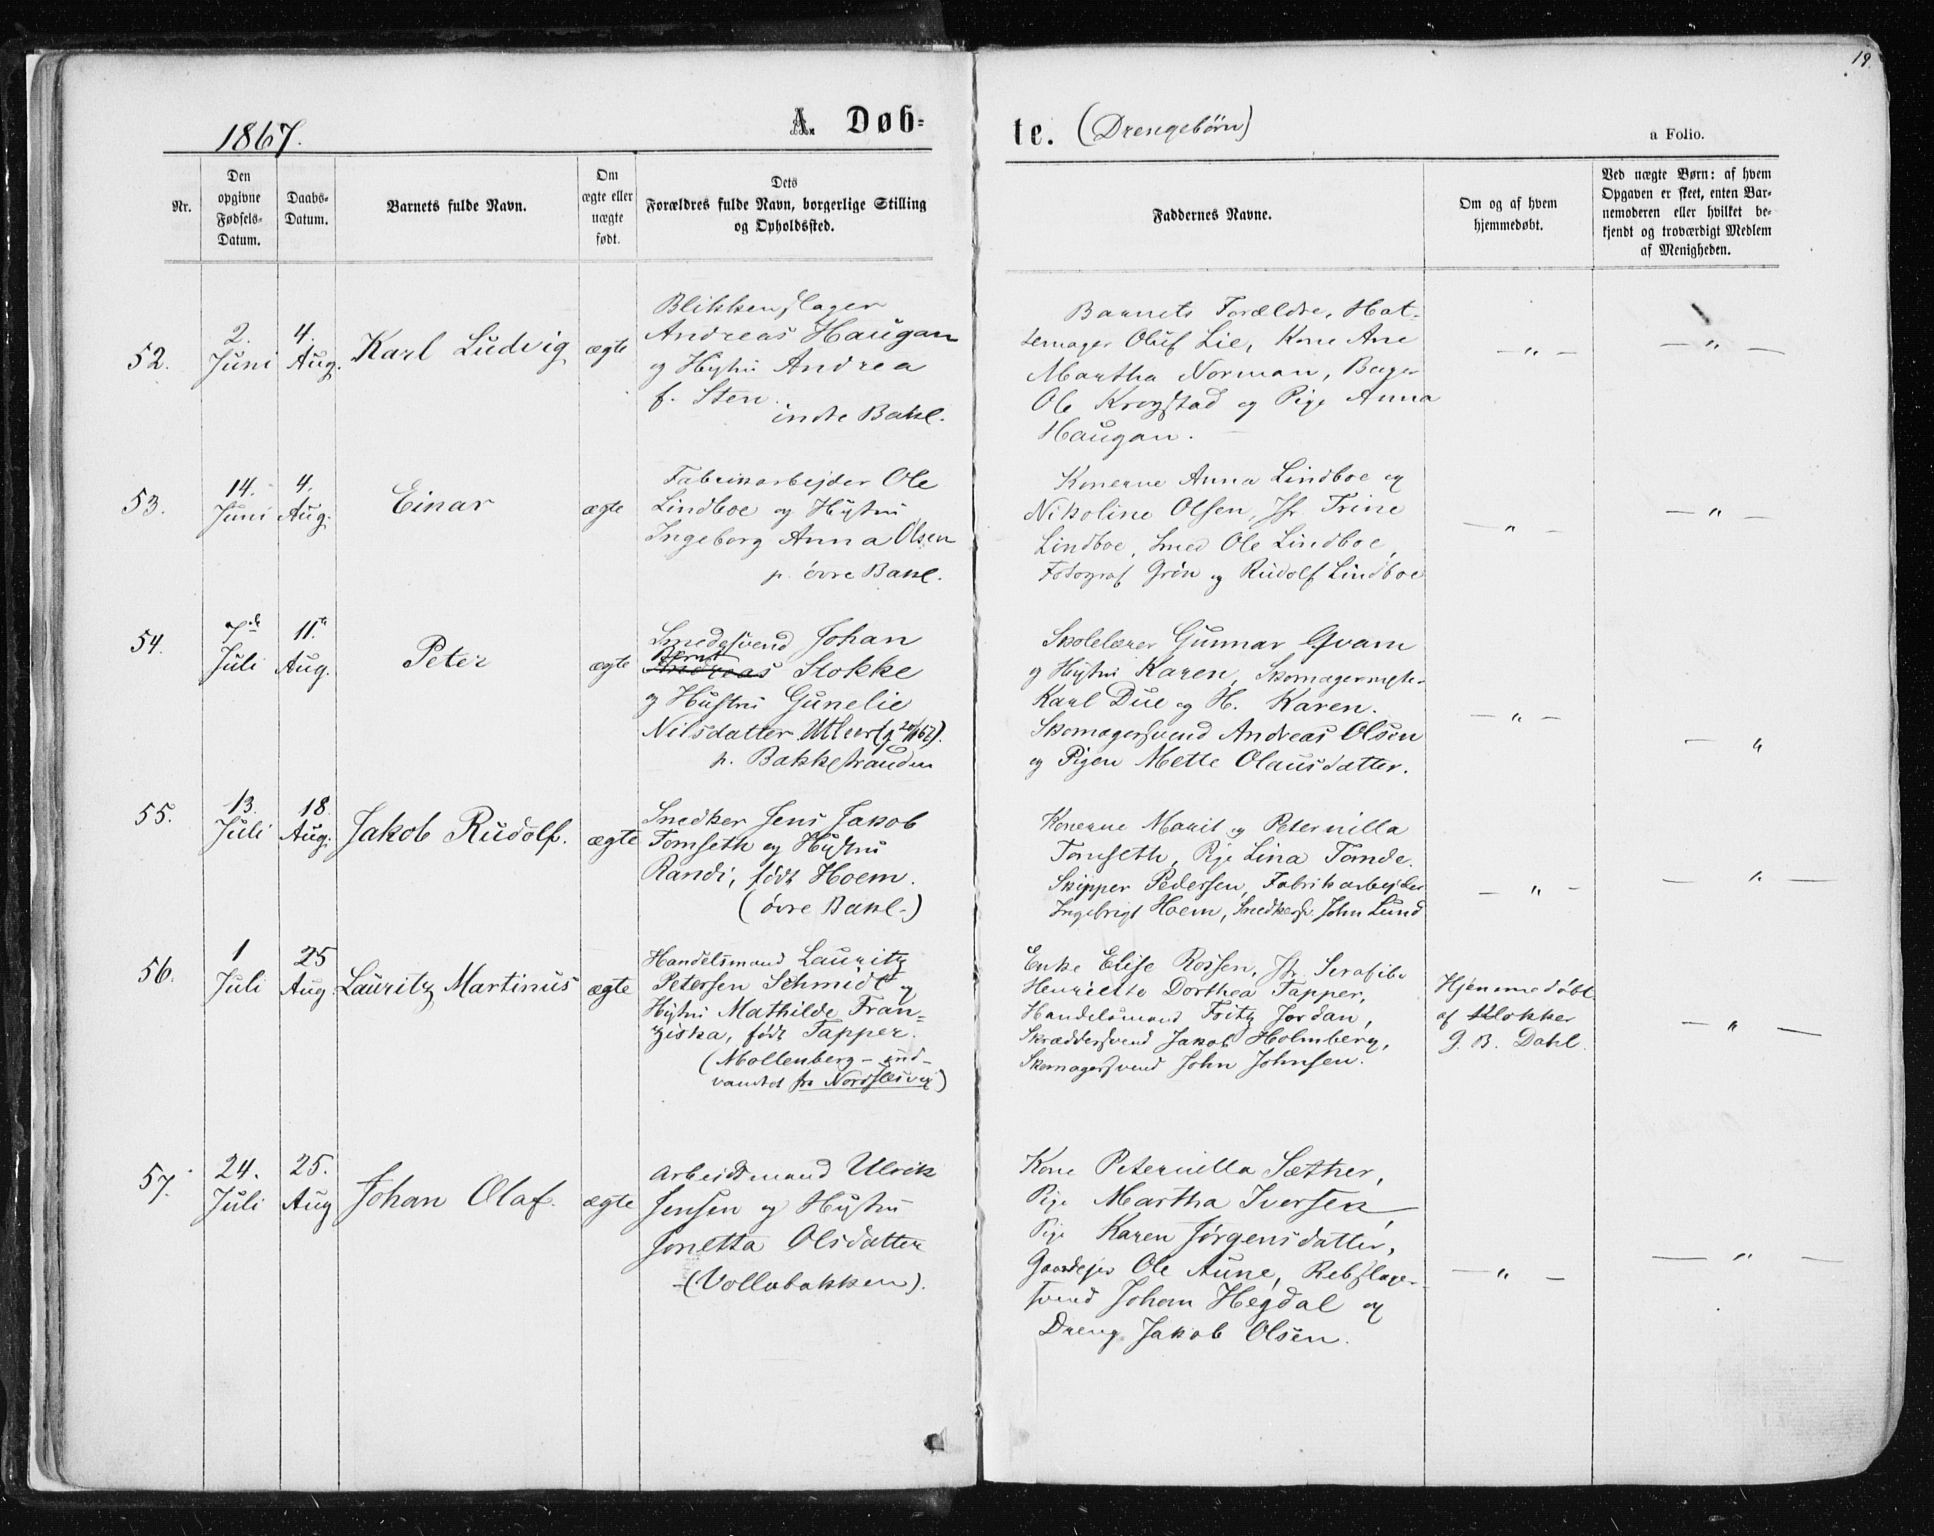 19.
1867.
A. Døb-
te. (Drengebørn)
a Folio.
Nr.
Den
opgivne
Fødsels-
Datum.
Daabs-
Datum.
Barnets fulde Navn.
Om
ægte eller
uægte
født.
Dets
Forældres fulde Navn, borgerlige Stilling
og Opholdssted.
Faddernes Navne.
Om og af hvem
hjemmedøbt.
Ved uægte Børn: af hvem
Opgaven er skeet, enten Bar-
nemoderen eller hvilket be-
kjendt og troværdigt Medlem
af Menigheden.
52.
2.
Juni
4.
Aug.
Karl Ludvig
ægte
Blikkenslager
Andreas Haugan
og Hustru Andrea
f. Sten.
indre Bakl.
Barnets Forældre, Hat-
temager Oluf Lie, Kone Ane
Martha Norman, Bager
Ole Krogstad og Pige Anna
Haugan.
— " —
— " —
53.
14.
Juni
4.
Aug.
Einar
ægte
Fabrikarbejder Ole
Lindboe og Hustru
Ingeborg Anna Olsen
p. øvre Bakl.
Konerne Anna Lindboe og
Nikoline Olsen, Jfr. Trine
Lindboe, Smed Ole Lindboe,
Fotograf Grön og Rudolf Lindboe
— " —
— " —
54.
7de
Juli
11te
Aug.
Peter
ægte
Smedesvend Johan
Bernt
Andreas Stokke
og Hustru Gunelie
Nilsdatter
p. Bakkestranden
Skolelærer Gunnar Qvam
og Hustru Karen, Skomagermester
Karl Due og H. Karen.
Skomagersvend Andreas Olsen
og Pigen Mette Olausdatter.
— " —
— "
55.
13.
Juli
18
Aug.
Jakob Rudolf.
ægte
Snedker Jens Jakob
Tomseth og Hustru
Randi, født Hoem.
(øvre Bakl.)
Konerne Marit og Peternilla
Tomseth, Pige Lina Tomde.
Skipper Pedersen, Fabrikarbejder
Ingebrigt Hoem, Snedkersv. John Lund
— " —
— " —
56.
1
Juli
25
Aug
Lauritz Martinus
ægte
Handelsmand Lauritz
Petersen Schmidt og
Hustru Mathilde Fran-
ziska, født Tapper.
(Mollenberg - ind-
vandret fra Nordslesvig)
Enke Elise Rossen, Jfr. Serafine
Henriette Dorthea Tapper,
Handelsmand Fritz Jordan,
Skræddersvend Jakob Holmberg,
Skomagersvend John Johnsen.
Hjemmedøbt
af Klokker
G. B. Dahl.
— " —
57.
24.
Juli
25.
Aug
Johan Olaf.
ægte
Arbeidsmand Ulrik
Jensen og Hustru
Jonetta Olsdatter
(Vollabakken).
Kone Peternilla Sæther,
Pige Martha Iversen,
Pige Karen Jørgensdatter,
Gaardejer Ole Aune, Rebslager-
svend Johan Hegdal og
Dreng Jakob Olsen.
— " —
— " —